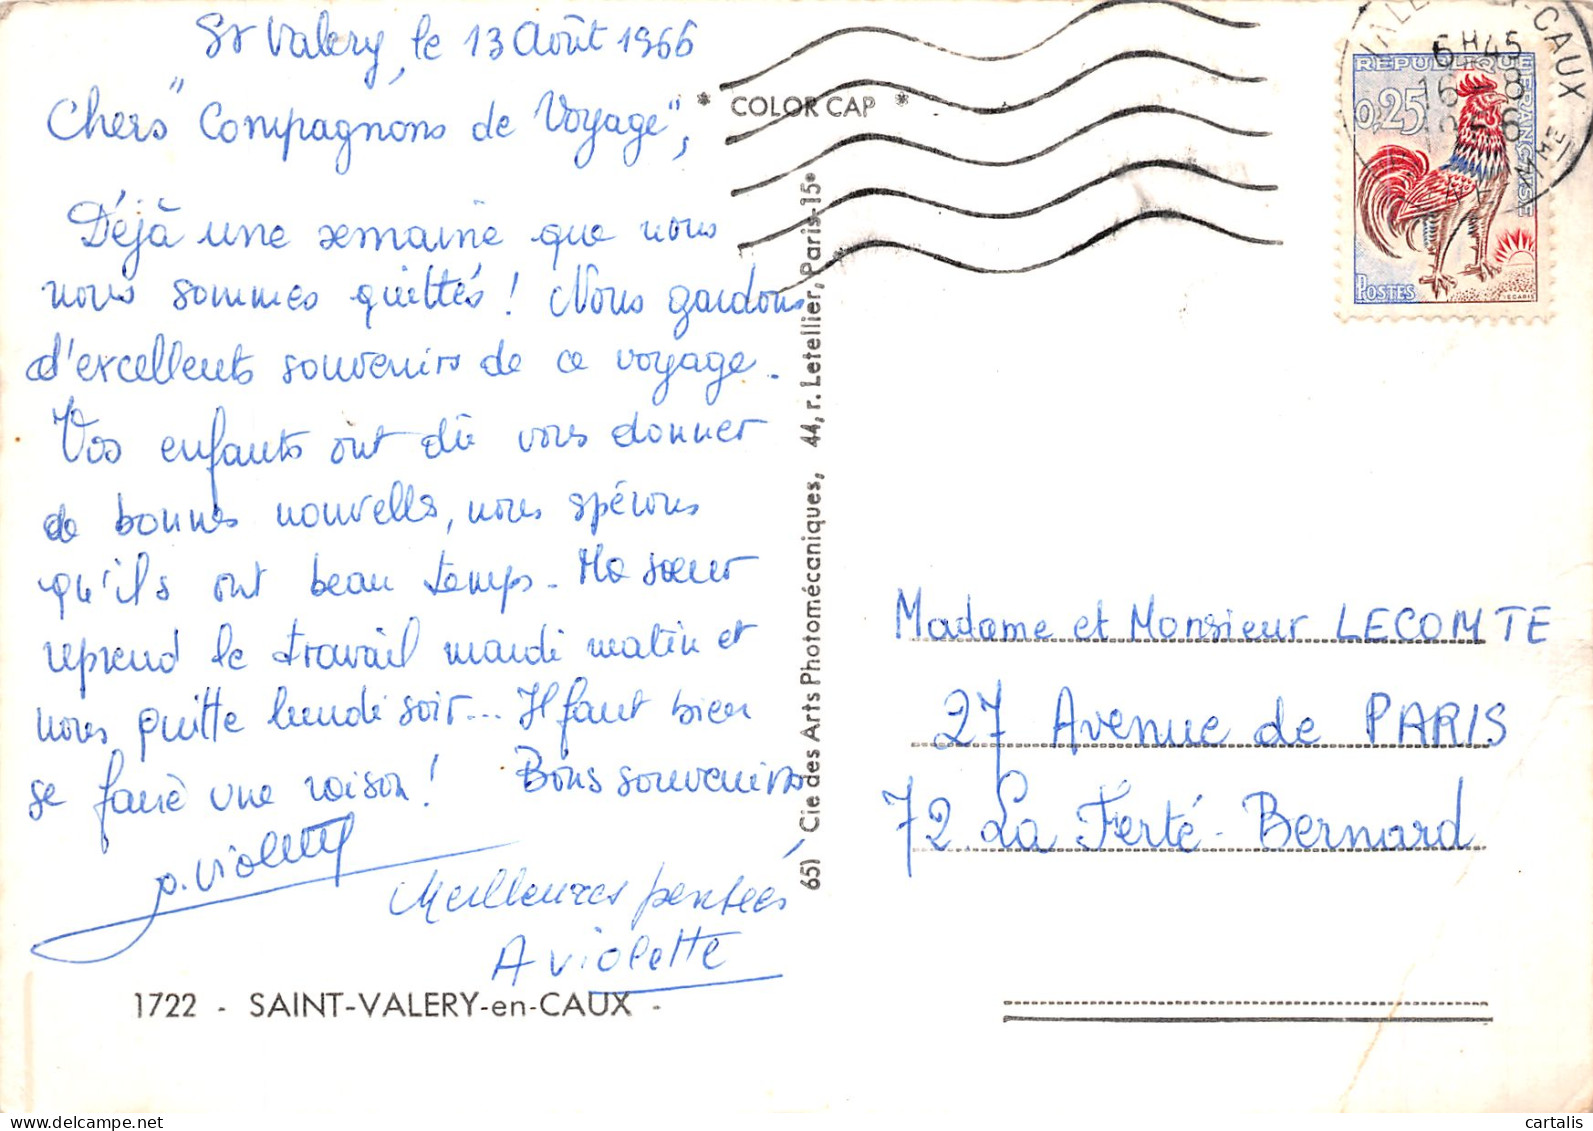 St Valery, le 13 Août 1966
Chers "Compagnons de Voyage",
Déjà une semaine que nous
nous sommes quittés ! Nous gardons
d'excellents souvenirs de ce voyage.
Vos enfants ont dû vous donner
de bonnes nouvelles, nous spérons
qu'ils ont beau temps. Ma sœur
reprend le travail mardi matin et
nous quitte lundi soir... Il faut bien
se faire une raison ! Bons souvenirs
p. Violette
Meilleures pensées
A Violette
1722 - SAINT-VALERY-en-CAUX -
* COLOR CAP *
651 Cie des Arts Photomécaniques, 44, r. Letellier, Paris-15e
6H45
16 - 8
REPUBLIQUE FRANÇAISE
0,25
POSTES
Madame et Monsieur LECOMTE
27 Avenue de PARIS
72. La Ferté-Bernard
cartalis